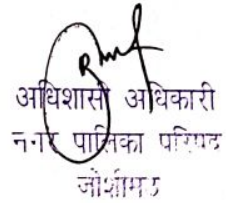 अधिशासी अधिकारी
नगर पालिका परिषद
जोशीमठ